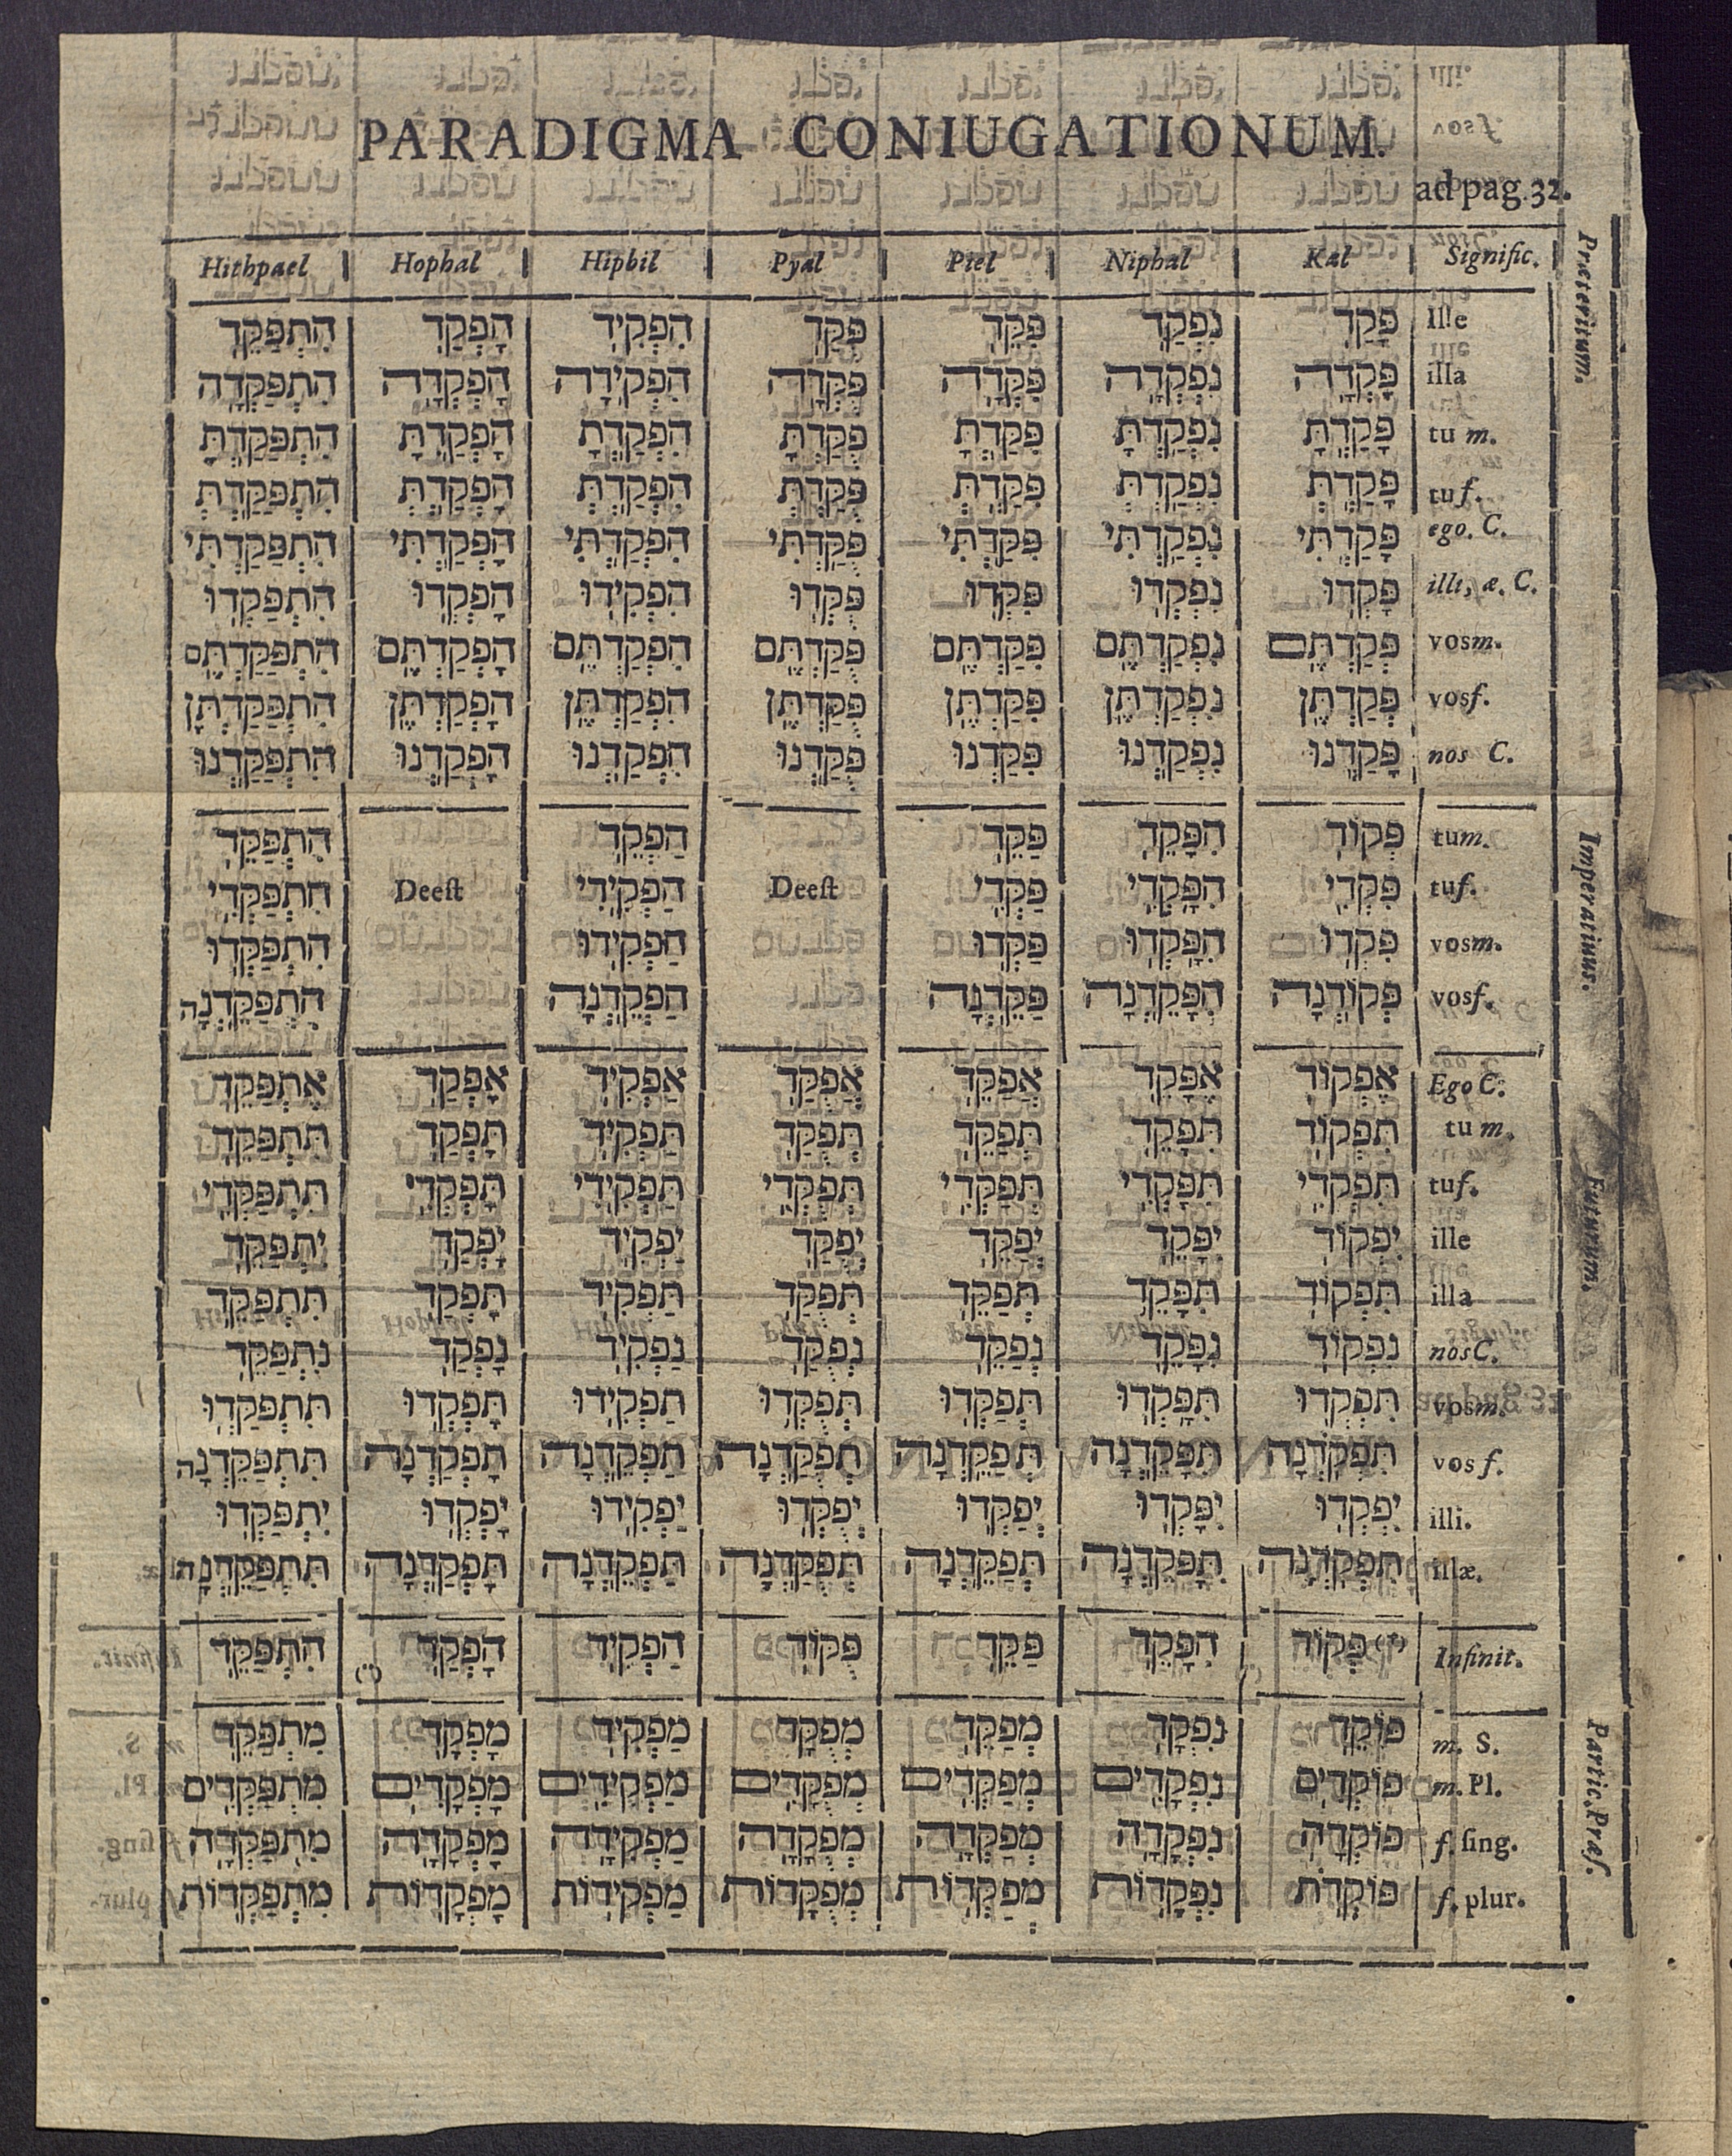 PARADIGMA CONIUGATIONUM.
ad pag. 32.
Signific. Kal Niphal Piel Pyal Hiphil Hophal Hithpael
Præteritum.
Ille פָּקַד נִפְקַד פִּקֵּד פֻּקַּד הִפְקִיד הָפְקַד הִתְפַּקֵּד
illa פָּקְדָה נִפְקְדָה פִּקְּדָה פֻּקְּדָה הִפְקִידָה הָפְקְדָה הִתְפַּקְּדָה
tu m. פָּקַדְתָּ נִפְקַדְתָּ פִּקַּדְתָּ פֻּקַּדְתָּ הִפְקַדְתָּ הָפְקַדְתָּ הִתְפַּקַּדְתָּ
tu f. פָּקַדְתְּ נִפְקַדְתְּ פִּקַּדְתְּ פֻּקַּדְתְּ הִפְקַדְתְּ הָפְקַדְתְּ הִתְפַּקַּדְתְּ
ego. C. פָּקַדְתִּי נִפְקַדְתִּי פִּקַּדְתִּי פֻּקַּדְתִּי הִפְקַדְתִּי הָפְקַדְתִּי הִתְפַּקַּדְתִּי
illi, æ. C. פָּקְדוּ נִפְקְדוּ פִּקְּדוּ פֻּקְּדוּ הִפְקִידוּ הָפְקְדוּ הִתְפַּקְּדוּ
vos m. פְּקַדְתֶּם נִפְקַדְתֶּם פִּקַּדְתֶּם פֻּקַּדְתֶּם הִפְקַדְתֶּם הָפְקַדְתֶּם הִתְפַּקַּדְתֶּם
vos f. פְּקַדְתֶּן נִפְקַדְתֶּן פִּקַּדְתֶּן פֻּקַּדְתֶּן הִפְקַדְתֶּן הָפְקַדְתֶּן הִתְפַּקַּדְתֶּן
nos C. פָּקַדְנוּ נִפְקַדְנוּ פִּקַּדְנוּ פֻּקַּדְנוּ הִפְקַדְנוּ הָפְקַדְנוּ הִתְפַּקַּדְנוּ
Imperatiuus.
tu m. פְּקוֹד הִפָּקֵד פַּקֵּד הַפְקֵד הִתְפַּקֵּד
tu f. פִּקְדִי הִפָּקְדִי פַּקְּדִי Deest הַפְקִידִי Deest הִתְפַּקְּדִי
vos m. פִּקְדוּ הִפָּקְדוּ פַּקְּדוּ הַפְקִידוּ הִתְפַּקְּדוּ
vos f. פְּקוֹדְנָה הִפָּקֵדְנָה פַּקֵּדְנָה הַפְקֵדְנָה הִתְפַּקֵּדְנָה
Futurum.
Ego C. אֶפְקוֹד אֶפָּקֵד אֲפַקֵּד אֲפֻקַּד אַפְקִיד אָפְקַד אֶתְפַּקֵּד
tu m. תִּפְקוֹד תִּפָּקֵד תְּפַקֵּד תְּפֻקַּד תַּפְקִיד תָּפְקַד תִּתְפַּקֵּד
tu f. תִּפְקְדִי תִּפָּקְדִי תְּפַקְּדִי תְּפֻקְּדִי תַּפְקִידִי תָּפְקְדִי תִּתְפַּקְּדִי
ille יִפְקוֹד יִפָּקֵד יְפַקֵּד יְפֻקַּד יַפְקִיד יָפְקַד יִתְפַּקֵּד
illa תִּפְקוֹד תִּפָּקֵד תְּפַקֵּד תְּפֻקַּד תַּפְקִיד תָּפְקַד תִּתְפַּקֵּד
nos C. נִפְקוֹד נִפָּקֵד נְפַקֵּד נְפֻקַּד נַפְקִיד נָפְקַד נִתְפַּקֵּד
vos m. תִּפְקְדוּ תִּפָּקְדוּ תְּפַקְּדוּ תְּפֻקְּדוּ תַּפְקִידוּ תָּפְקְדוּ תִּתְפַּקְּדוּ
vos f. תִּפְקֹדְנָה תִּפָּקֵדְנָה תְּפַקֵּדְנָה תְּפֻקַּדְנָה תַּפְקֵדְנָה תָּפְקַדְנָה תִּתְפַּקֵּדְנָה
illi. יִפְקְדוּ יִפָּקְדוּ יְפַקְּדוּ יְפֻקְּדוּ יַפְקִידוּ יָפְקְדוּ יִתְפַּקְּדוּ
illæ. תִּפְקֹדְנָה תִּפָּקֵדְנָה תְּפַקֵּדְנָה תְּפֻקַּדְנָה תַּפְקֵדְנָה תָּפְקַדְנָה תִּתְפַּקֵּדְנָה
Infinit. פְּקוֹד הִפָּקֵד פַּקֵּד פֻּקּוֹד הַפְקִיד הָפְקַד הִתְפַּקֵּד
Partic. Præs.
m. S. פּוֹקֵד נִפְקָד מְפַקֵּד מְפֻקָּד מַפְקִיד מָפְקָד מִתְפַּקֵּד
m. Pl. פּוֹקְדִים נִפְקָדִים מְפַקְּדִים מְפֻקָּדִים מַפְקִידִים מָפְקָדִים מִתְפַּקְּדִים
f. sing. פּוֹקְדָה נִפְקָדָה מְפַקְּדָה מְפֻקָּדָה מַפְקִידָה מָפְקָדָה מִתְפַּקְּדָה
f. plur. פּוֹקְדֹת נִפְקָדוֹת מְפַקְּדוֹת מְפֻקָּדוֹת מַפְקִידוֹת מָפְקָדוֹת מִתְפַּקְּדוֹת